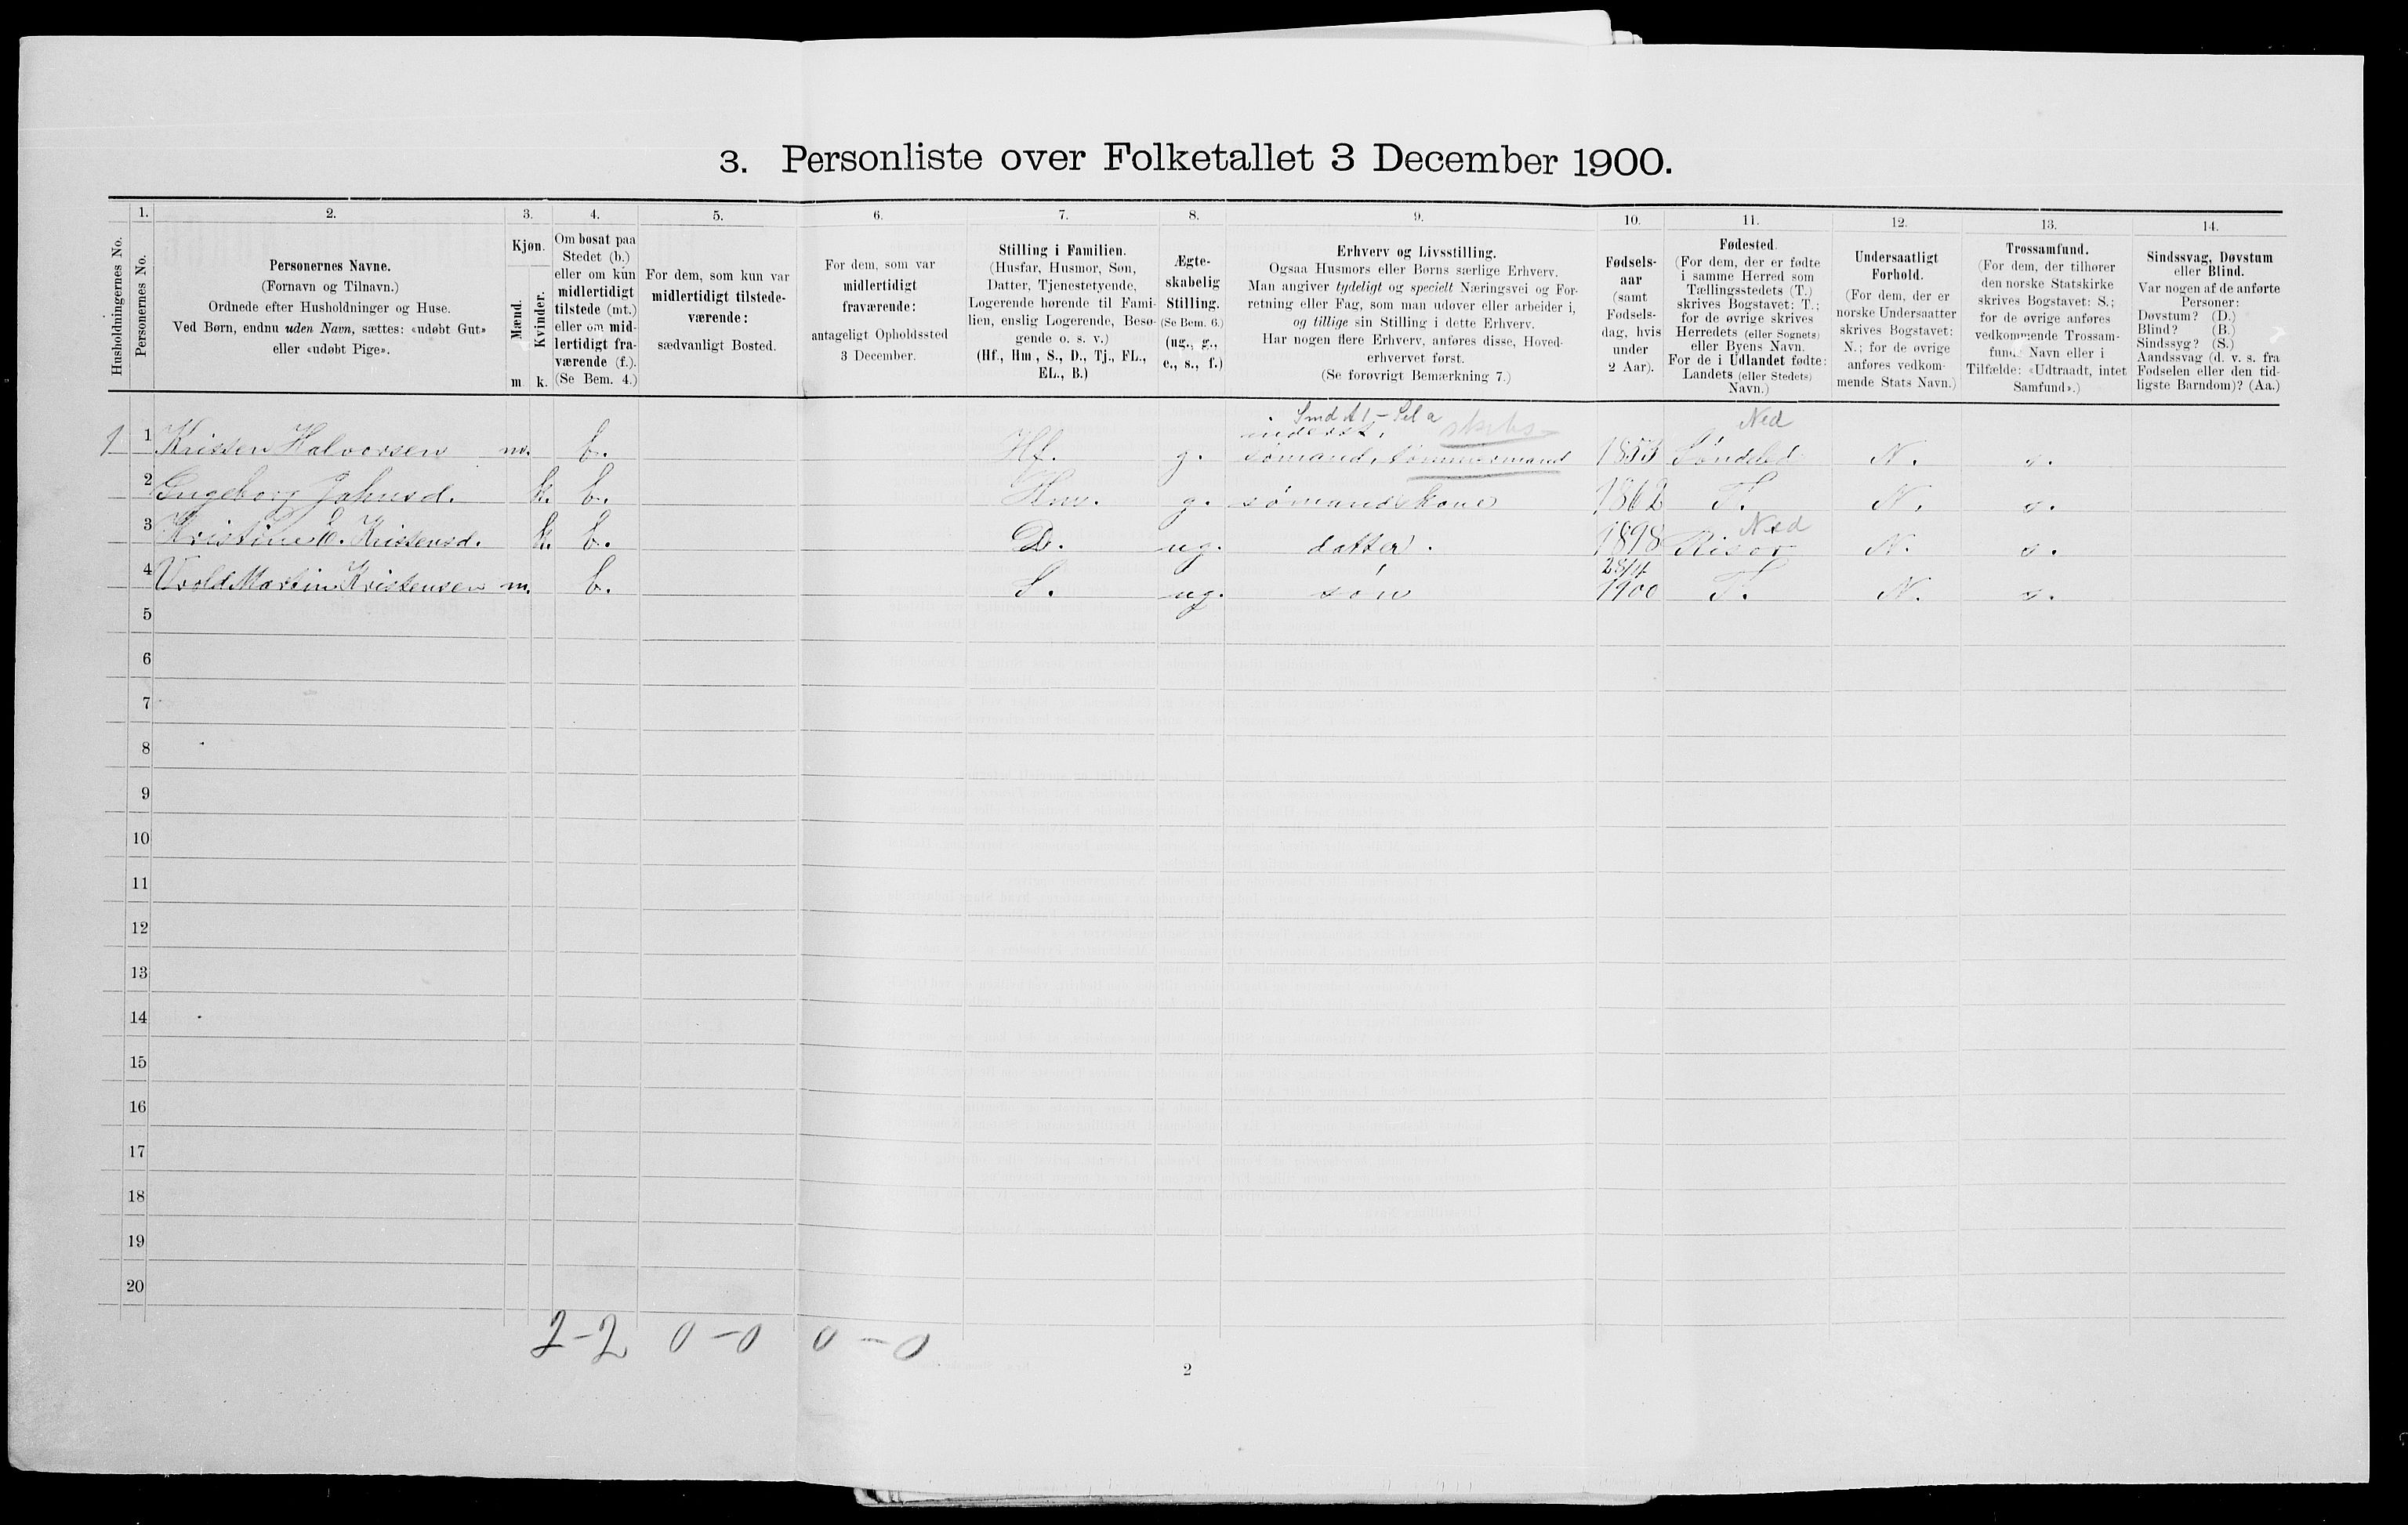 3. Personliste over Folketallet 3 December 1900.
Husholdningernes No.
1.
Personernes No.
2.
Personernes Navne.
(Fornavn og Tilnavn.)
Ordnede efter Husholdninger og Huse.
Ved Børn, endnu uden Navn, sættes: «udøbt Gut»
eller «udøbt Pige».
3.
Kjøn.
Mænd.
Kvinder.
m
k.
4.
Om bosat paa
Stedet (b.)
eller om kun
midlertidigt
tilstede (mt.)
eller om mid-
lertidigt fra-
værende (f.).
(Se Bem. 4.)
5.
For dem, som kun var
midlertidigt tilstede-
værende:
sædvanligt Bosted.
6.
For dem, som var
midlertidigt
fraværende:
antageligt Opholdssted
3 December.
7.
Stilling i Familien.
(Husfar, Husmor, Søn,
Datter, Tjenestetyende,
Logerende hørende til Fami-
lien, enslig Logerende, Besø-
gende o. s. v.)
(Hf., Hm., S., D., Tj., FL.,
EL., B.)
8.
Ægte-
skabelig
Stilling.
(Se Bem. 6.)
(ug., g.,
e., s., f.)
9.
Erhverv og Livsstilling.
Ogsaa Husmors eller Børns særlige Erhverv.
Man angiver tydeligt og specielt Næringsvei og For-
retning eller Fag, som man udøver eller arbeider i,
og tillige sin Stilling i dette Erhverv.
Har nogen flere Erhverv, anføres disse, Hoved-
erhvervet først.
(Se forøvrigt Bemærkning 7.)
10.
Fødsels-
aar
(samt
Fødsels-
dag, hvis
under
2 Aar).
11.
Fødested.
(For dem, der er fødte
i samme Herred som
Tællingsstedets (T.)
skrives Bogstavet: T.;
for de øvrige skrives
Herredets (eller Sognets)
eller Byens Navn.
For de i Udlandet fødte:
Landets (eller Stedets)
Navn.)
12.
Undersaatligt
Forhold.
(For dem, der er
norske Undersaatter
skrives Bogstavet:
N.; for de øvrige
anføres vedkom-
mende Stats Navn.)
13.
Trossamfund.
(For dem, der tilhører
den norske Statskirke
skrives Bogstavet: S.;
for de øvrige anføres
vedkommende Trossam-
funds Navn eller i
Tilfælde: «Udtraadt, intet
Samfund».)
14.
Sindssvag, Døvstum
eller Blind.
Var nogen af de anførte
Personer:
Døvstum? (D.)
Blind? (B.)
Sindssyg? (S.)
Aandssvag (d. v. s. fra
Fødselen eller den tid-
ligste Barndom)? (Aa.)
inderst, skibs Ned
1 1 Kristen Halvorsen m. b. Hf. g. sømand, tømmermand 1853 Søndeled N. s.
2 Engeborg Johnsd. k. b. Hm. g. sømandskone 1862 T. N. s.
Ned
3 Kristine E. Kristensd. k. b. D. ug. datter. 1898 Risør N. s.
28/4
4 Vrold Martin Kristensen m. b. S. ug. søn 1900 T. N. s.
5
6
7
8
9
10
11
12
13
14
15
16
17
18
19
20
2-2 0-0 0-0
2